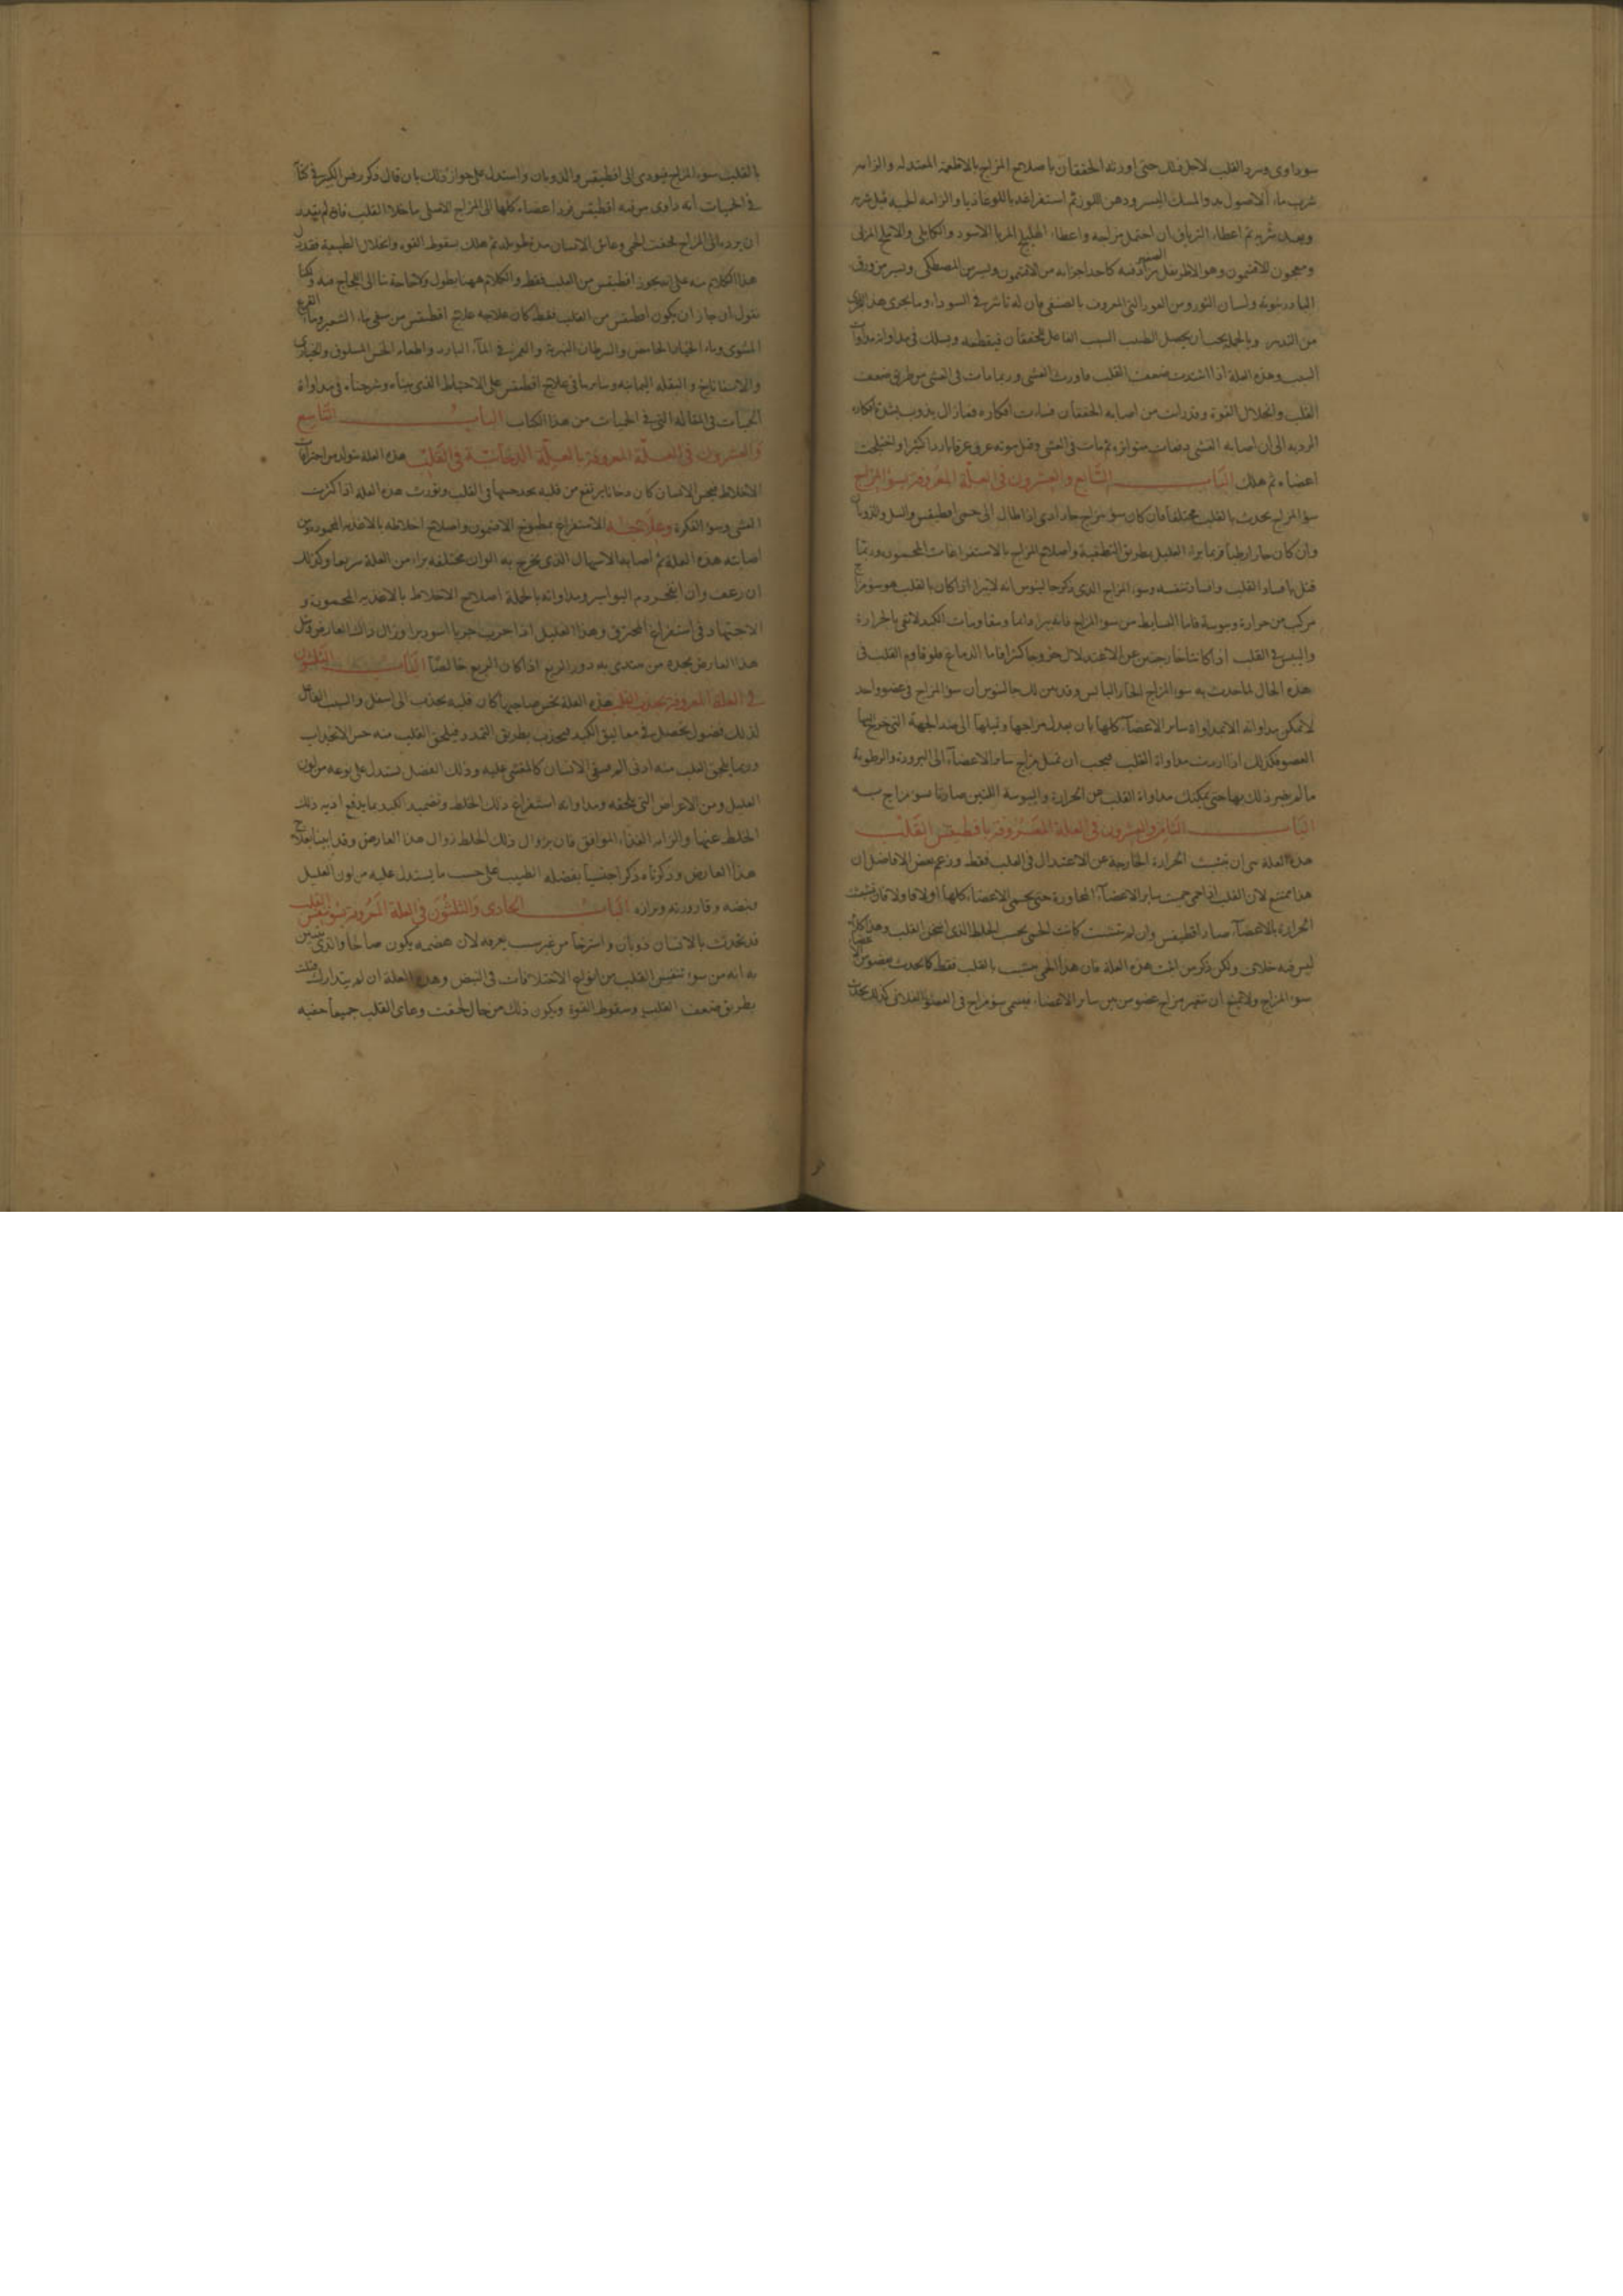 سوداوى وسرد القلب لاجل ذلك حتى اورثه الخفقان باصلاح المزاج بالاطعمة المعتدله والزامه
شرب ماء الاصول بد والمسك اليسر ودهن اللوز ثم استفراغه باللوغاذيا والزامه الحمية قبل شربه
وبعد شربه ثم اعطاء الترياق ان احتمل مزاجه واعطاء الهليلج المربا الاسود والكابلى والاملج المربى
ومعجون الافتيمون وهو الاطريفل الصغير يزاد فيه كاحد اجزائه من الافتيمون ويسير من المصطكى ويسير من ورق
البادرنبويه ولسان الثور ومن العود التى المعروف بالصنفى فان له تاثير فى السوداء وما يجرى هذا المجرى
من التدبير وبالجملة يجب ان يحصل الطبيب السبب الفاعل للخفقان فيقطعه ويسلك فى مداواته مداواة
السبب وهذه العلة اذا اشتدت بضعف القلب ما ورث الغشى وربما مات فى الغشى من طريق ضعف
القلب وانحلال القوة وقد رايت من اصابه الخفقان فساءت افكاره فما زال يذوب بشدة افكاره
الرديه الى ان اصابه الغشى دفعات متواتره ثم مات فى الغشى وقبل موته عرق عرقا باردا كثيرا واختلجت
اعضاءه ثم هلك الباب السابع والعشرون فى العلة المعروفة بسوء المزاج
سوء المزاج يحدث بالقلب مختلفا فان كان سوء مزاج حار ادى اذا طال الى حمى اقطيقس والسل والذوبان
وان كان حارا رطبا فربما برا العليل بطريق التطفية واصلاح المزاج بالاستفراغات المحمودة وربما
قتل بافساد القلب وافساد تنفسه وسوء المزاج الذى ذكر جالينوس انه لا يبرا اذا كان بالقلب هو سوء مزاج
مركب من حرارة ويبوسة فاما البسايط من سوء المزاج فانه يبرا دائما ومقاومات الكبد لا تفى بالحرارة
واليبس فى القلب اذا كانتا خارجتين عن الاعتدال خروجا كثيرا فاما الدماغ فلو قاوم القلب فى
هذه الحال لما حدث به سوء المزاج الحار اليابس وقد بين لك جالينوس ان سوء المزاج فى عضو واحد
لا تمكن مداواته الا بمداواة سائر الاعضاء كلها بان يبدل مزاجها وتميلها الى ضد الجهة التى خرج اليها
العضو فكذلك اذا اردت مداواة القلب فيجب ان تميل مزاج سائر الاعضاء الى البرودة والرطوبة
ما لم يضر ذلك بها حتى يمكنك مداواة القلب من الحرارة واليبوسة اللتين صارتا سوء مزاج به
الباب الثامن والعشرون فى العلة المعروفة باقطيقس القلب
هذه العلة هى ان تتشبث الحرارة الخارجة عن الاعتدال فى القلب فقط وزعم بعض الافاضل ان
هذا ممتنع لان القلب اذا حمى حميت سائر الاعضاء المجاورة حتى يحمى الاعضاء كلها اولا فاولا فان تشبثت
الحرارة بالاعضاء صار اقطيقس وان لم تتشبث كانت الحمى بحسب الخلط الذى اسخن القلب وهذا كلام
ليس فيه خلاف ولكن ذكر من اثبت هذه العلة فان هذا الحمى يتشبث بالقلب فقط كما يحدث ببعض من الاعضاء
سوء المزاج ولا يمتنع ان يتغير مزاج عضو من بين سائر الاعضاء فيسمى سوء مزاج فى العضو الفلانى كذلك يحدث
بالقلب سوء المزاج فيودى الى اقطيقس والذوبان واستدل على جواز ذلك بان قال ذكر روفس الكبير فى كتابه
فى الحميات انه داوى من به اقطيقس فرد اعضاءه كلها الى المزاج الاصلى ما خلا القلب فانه لم يقدر
ان يرده الى المزاج فخفت الحمى وعاش الانسان مدة طويلة ثم هلك بسقوط القوه وانحلال الطبيعية فقد دل
هذا الكلام منه على انه يجوز اقطيقس من القلب فقط والكلام ههنا يطول ولا حاجة بنا الى الحجاج فيه ولكنا
نقول ان جاز ان يكون اقطيقس من القلب فقط كان علاجه علاج اقطيقس من سقى ماء الشعير وماء القرع
المشوى وماء الخيار الحامض والسرطان النهرية والتمريخ فى الماء البارد واطعام الخس المسلوق والخبازى
والاسفاناخ والبقلة اليمانية وسائر ما فى علاج اقطيقس على الاحتياط الذى بيناه وشرحناه فى مداواة
الحميات فى المقالة التى فى الحميات من هذا الكتاب الباب التاسع
والعشرون فى العلة المعروفة بالعلة الدخانية فى القلب هذه العلة تتولد من احتراق
الاخلاط فيحس الانسان كان دخانا يرتفع من قلبه يجد حسها فى القلب وتورث هذه العلة اذا كثرت
الغشى وسوء الفكرة وعلاجها الاستفراغ بمطبوخ الافتيمون واصلاح اخلاطه بالاغذية المحمودة ومن
اصابته هذه العلة ثم اصابه الاسهال الذى يخرج به الوان مختلفة برا من العلة سريعا وكذلك
ان رعف وان انفجر دم البواسير ومداواته بالجملة اصلاح الاخلاط بالاغذية المحمودة و
الاجتهاد فى استفراغ المحترق وهذا العليل اذا جرب جربا اسود برا وزال ذلك العارض ومثل
هذا العارض يجده من يبتدى به دور الربع اذا كان الربع خالصا الباب الثلثون
فى العلة المعروفة بجذب القلب هذه العلة يحس صاحبها كان قلبه يجذب الى اسفل والسبب الفاعل
لذلك فضول تحصل فى معاليق الكبد فيجذب بطريق التمدد فيلحق القلب منه حس الانجذاب
وربما يلحق القلب منه ادنى الم فيبقى الانسان كالمغشى عليه وذلك الفضل يستدل على نوعه من لون
العليل ومن الاعراض التى تلحقه ومداواته استفراغ ذلك الخلط وتضميد الكبد بما يدفع اذية ذلك
الخلط عنها والزام الغذاء الموافق فان بزوال ذلك الخلط زوال هذا العارض وقد اتينا بعلاج
هذا العارض وذكرناه ذكرا جنسيا يفضله الطبيب على حسب ما يستدل عليه من لون العليل
ونبضه وقارورته وبرازه الباب الحادى والثلثون فى العلة المعروفة بسوء تنفس القلب
قد يحدث بالانسان ذوبان واسترخاء من غير سبب يعرفه لان هضمه يكون صالحا والذى يتبين
به انه من سوء تنفس القلب من انواع الاختلافات فى النبض وهذه العلة ان لم يتدارك قتلت
بطريق ضعف القلب وسقوط القوة ويكون ذلك من حال لحقت وعاءى القلب جميعا حفيه